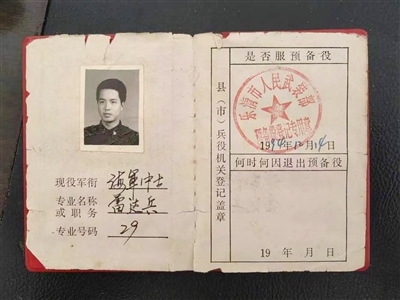 现役军衔 海军中士
专业名称
或职务 雷达兵
专业号码 29
县(市)兵役机关登记盖章
是否服预备役
乐清市人民武装部
预备役登记专用章
1994年12月14日
何时何因退出预备役
19 年 月 日